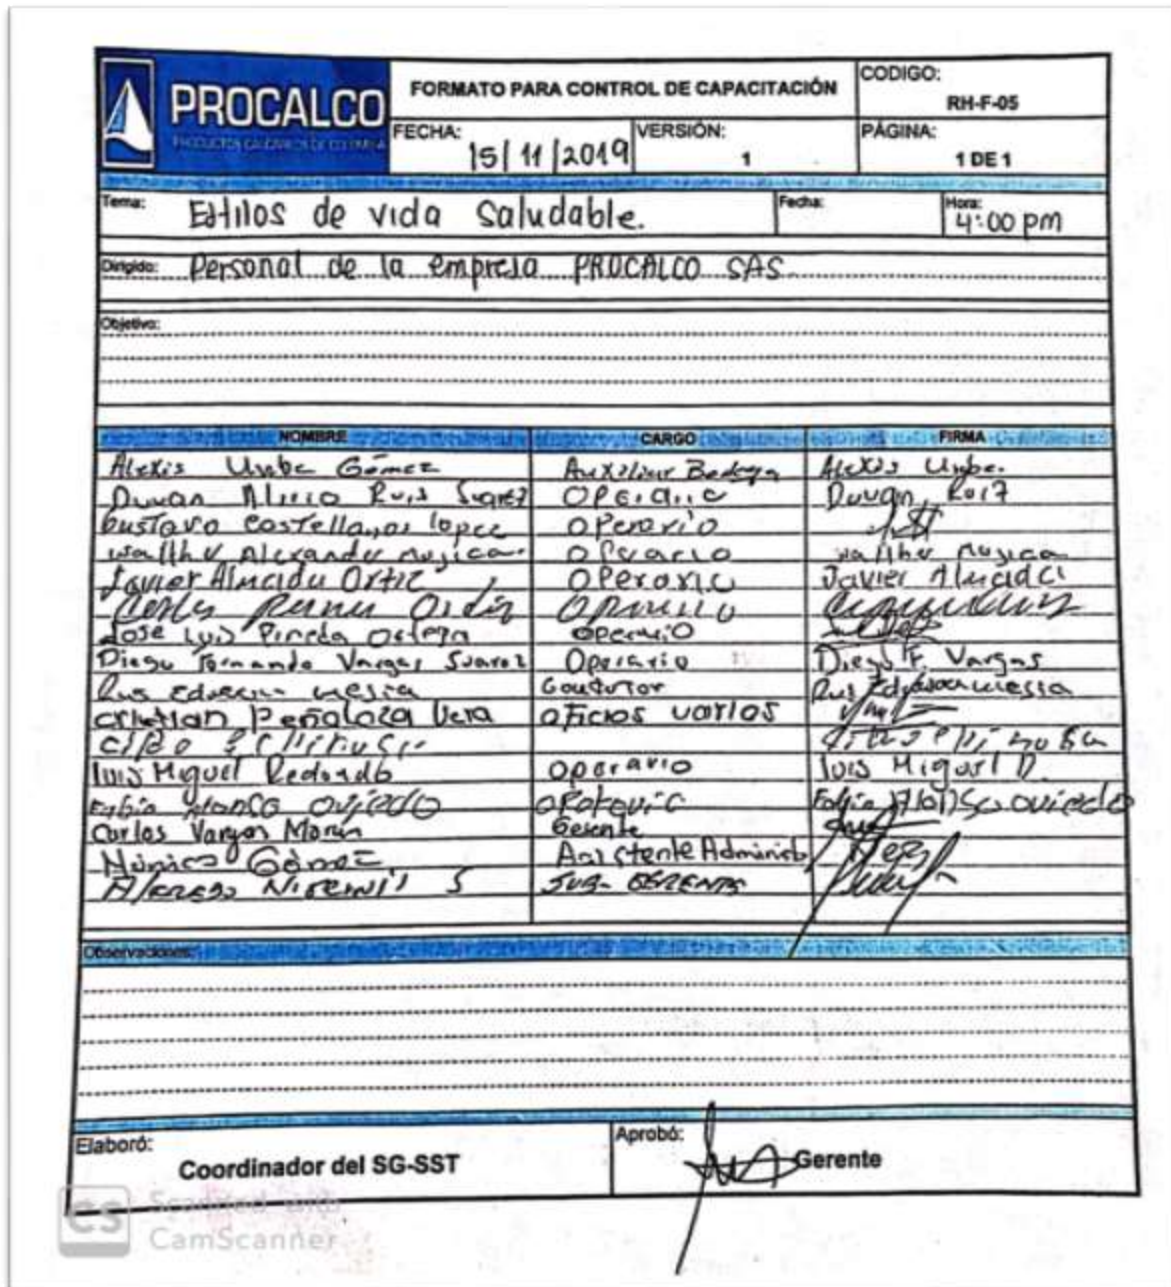 PROCALCO
PRODUCTOS CALCAREOS DE COLOMBIA
FORMATO PARA CONTROL DE CAPACITACIÓN
CODIGO:
RH-F-05
FECHA: 15/11/2019
VERSIÓN: 1
PÁGINA: 1 DE 1
Tema: Estilos de vida saludable.
Fecha:
Hora: 4:00 pm
Dirigido: Personal de la empresa PROCALCO SAS
Objetivo:
NOMBRE CARGO FIRMA
Alexis Uribe Gómez Auxiliar Bodega Alexis Uribe.
Duvan Ruis Suarez Operario Duvan Ruiz
Gustavo Castellanos lopez operario
Wallher Alexander mujica operario wallher mujica
Javier Almeida Ortiz Operario Javier Almeida
Carlos
Jose Luis Pineda Ortega operario
Diego Fernando Vargas Suarez Operario Diego F. Vargas
mesia Conductor mesia
cristian Peñaloza Vera oficios varios
luis Miguel Redondo operario luis Miguel
Fabio oviedo Fabio oviedo
Carlos Vargas Marin Gerente
Mónica Gómez Asistente Administ
S SUB-GERENTE
Observaciones:
Elaboró:
Coordinador del SG-SST
Aprobó:
Gerente
CS Scanned with
CamScanner